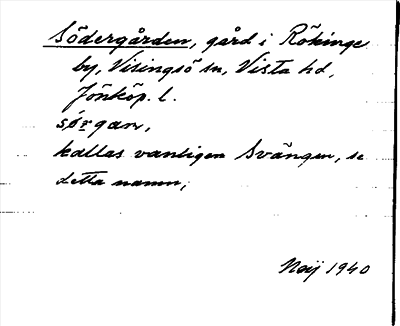 Södergården, gård i Rökinge
by, Visingsö sn, Vista hd,
Jönköp. l.
sø̱rgan,
kallas vanligen Svängen, se
detta namn;
1940